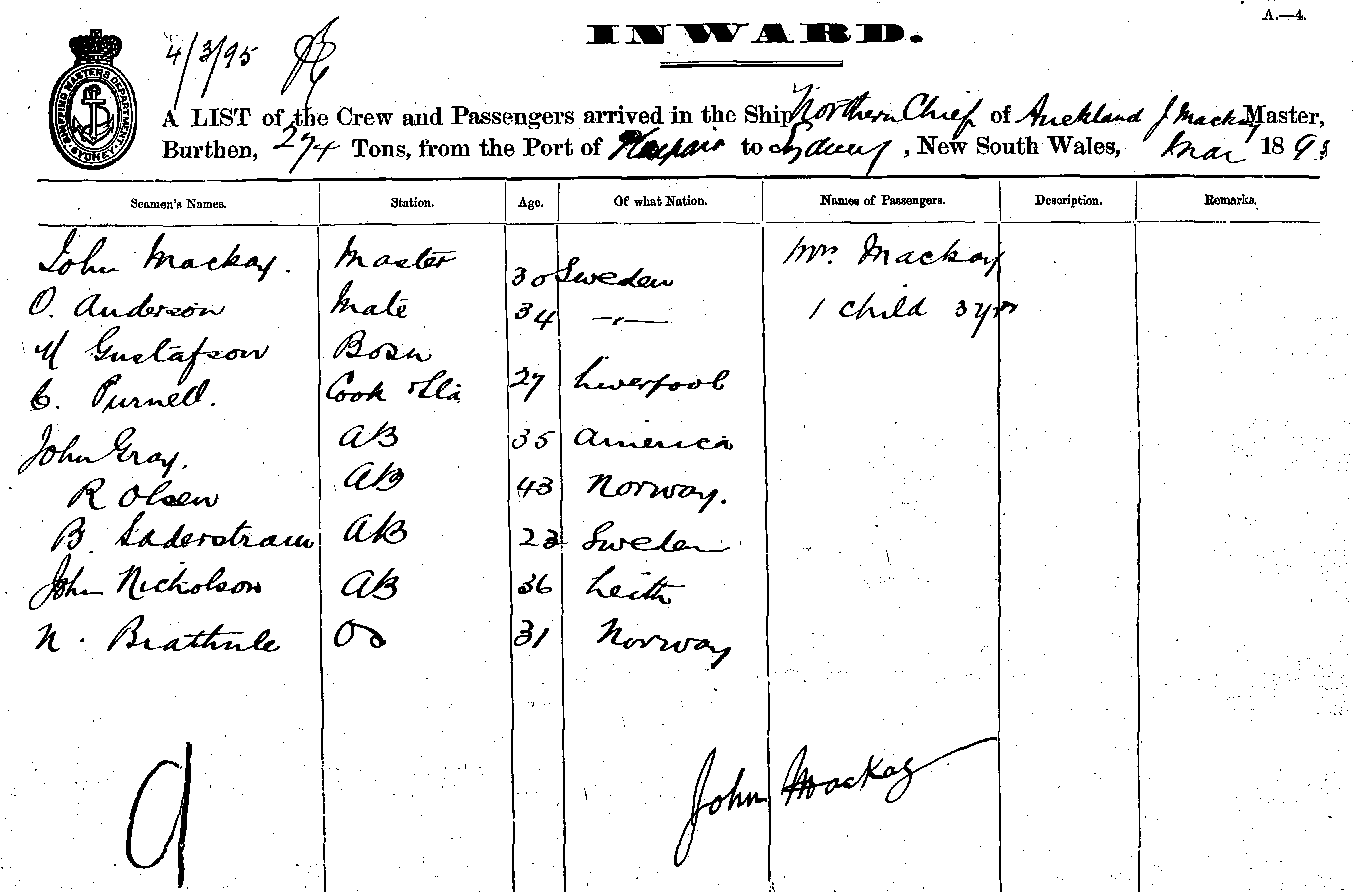 A.—4.
INWARD.
4/3/95
SHIPPING MASTERS DEPARTMENT SYDNEY
A LIST of the Crew and Passengers arrived in the Ship Northern Chief of Auckland J Mackay Master,
Burthen, 274 Tons, from the Port of Kaipara to Sydney, New South Wales, Mar 1895
Seamen's Names. Station. Age. Of what Nation. Names of Passengers. Description. Remarks.
John Mackay. Master 30 Sweden Mrs Mackay
O. Anderson Mate 34 —"— 1 child 3 yrs
M Gustafson Bosn
C. Purnell. Cook & Std 27 Liverpool
John Gray. AB 35 America
R Olsen AB 43 Norway.
B. Saderstram AB 23 Sweden
John Nicholson AB 36 Leith
N. OS 31 Norway
9
John Mackay